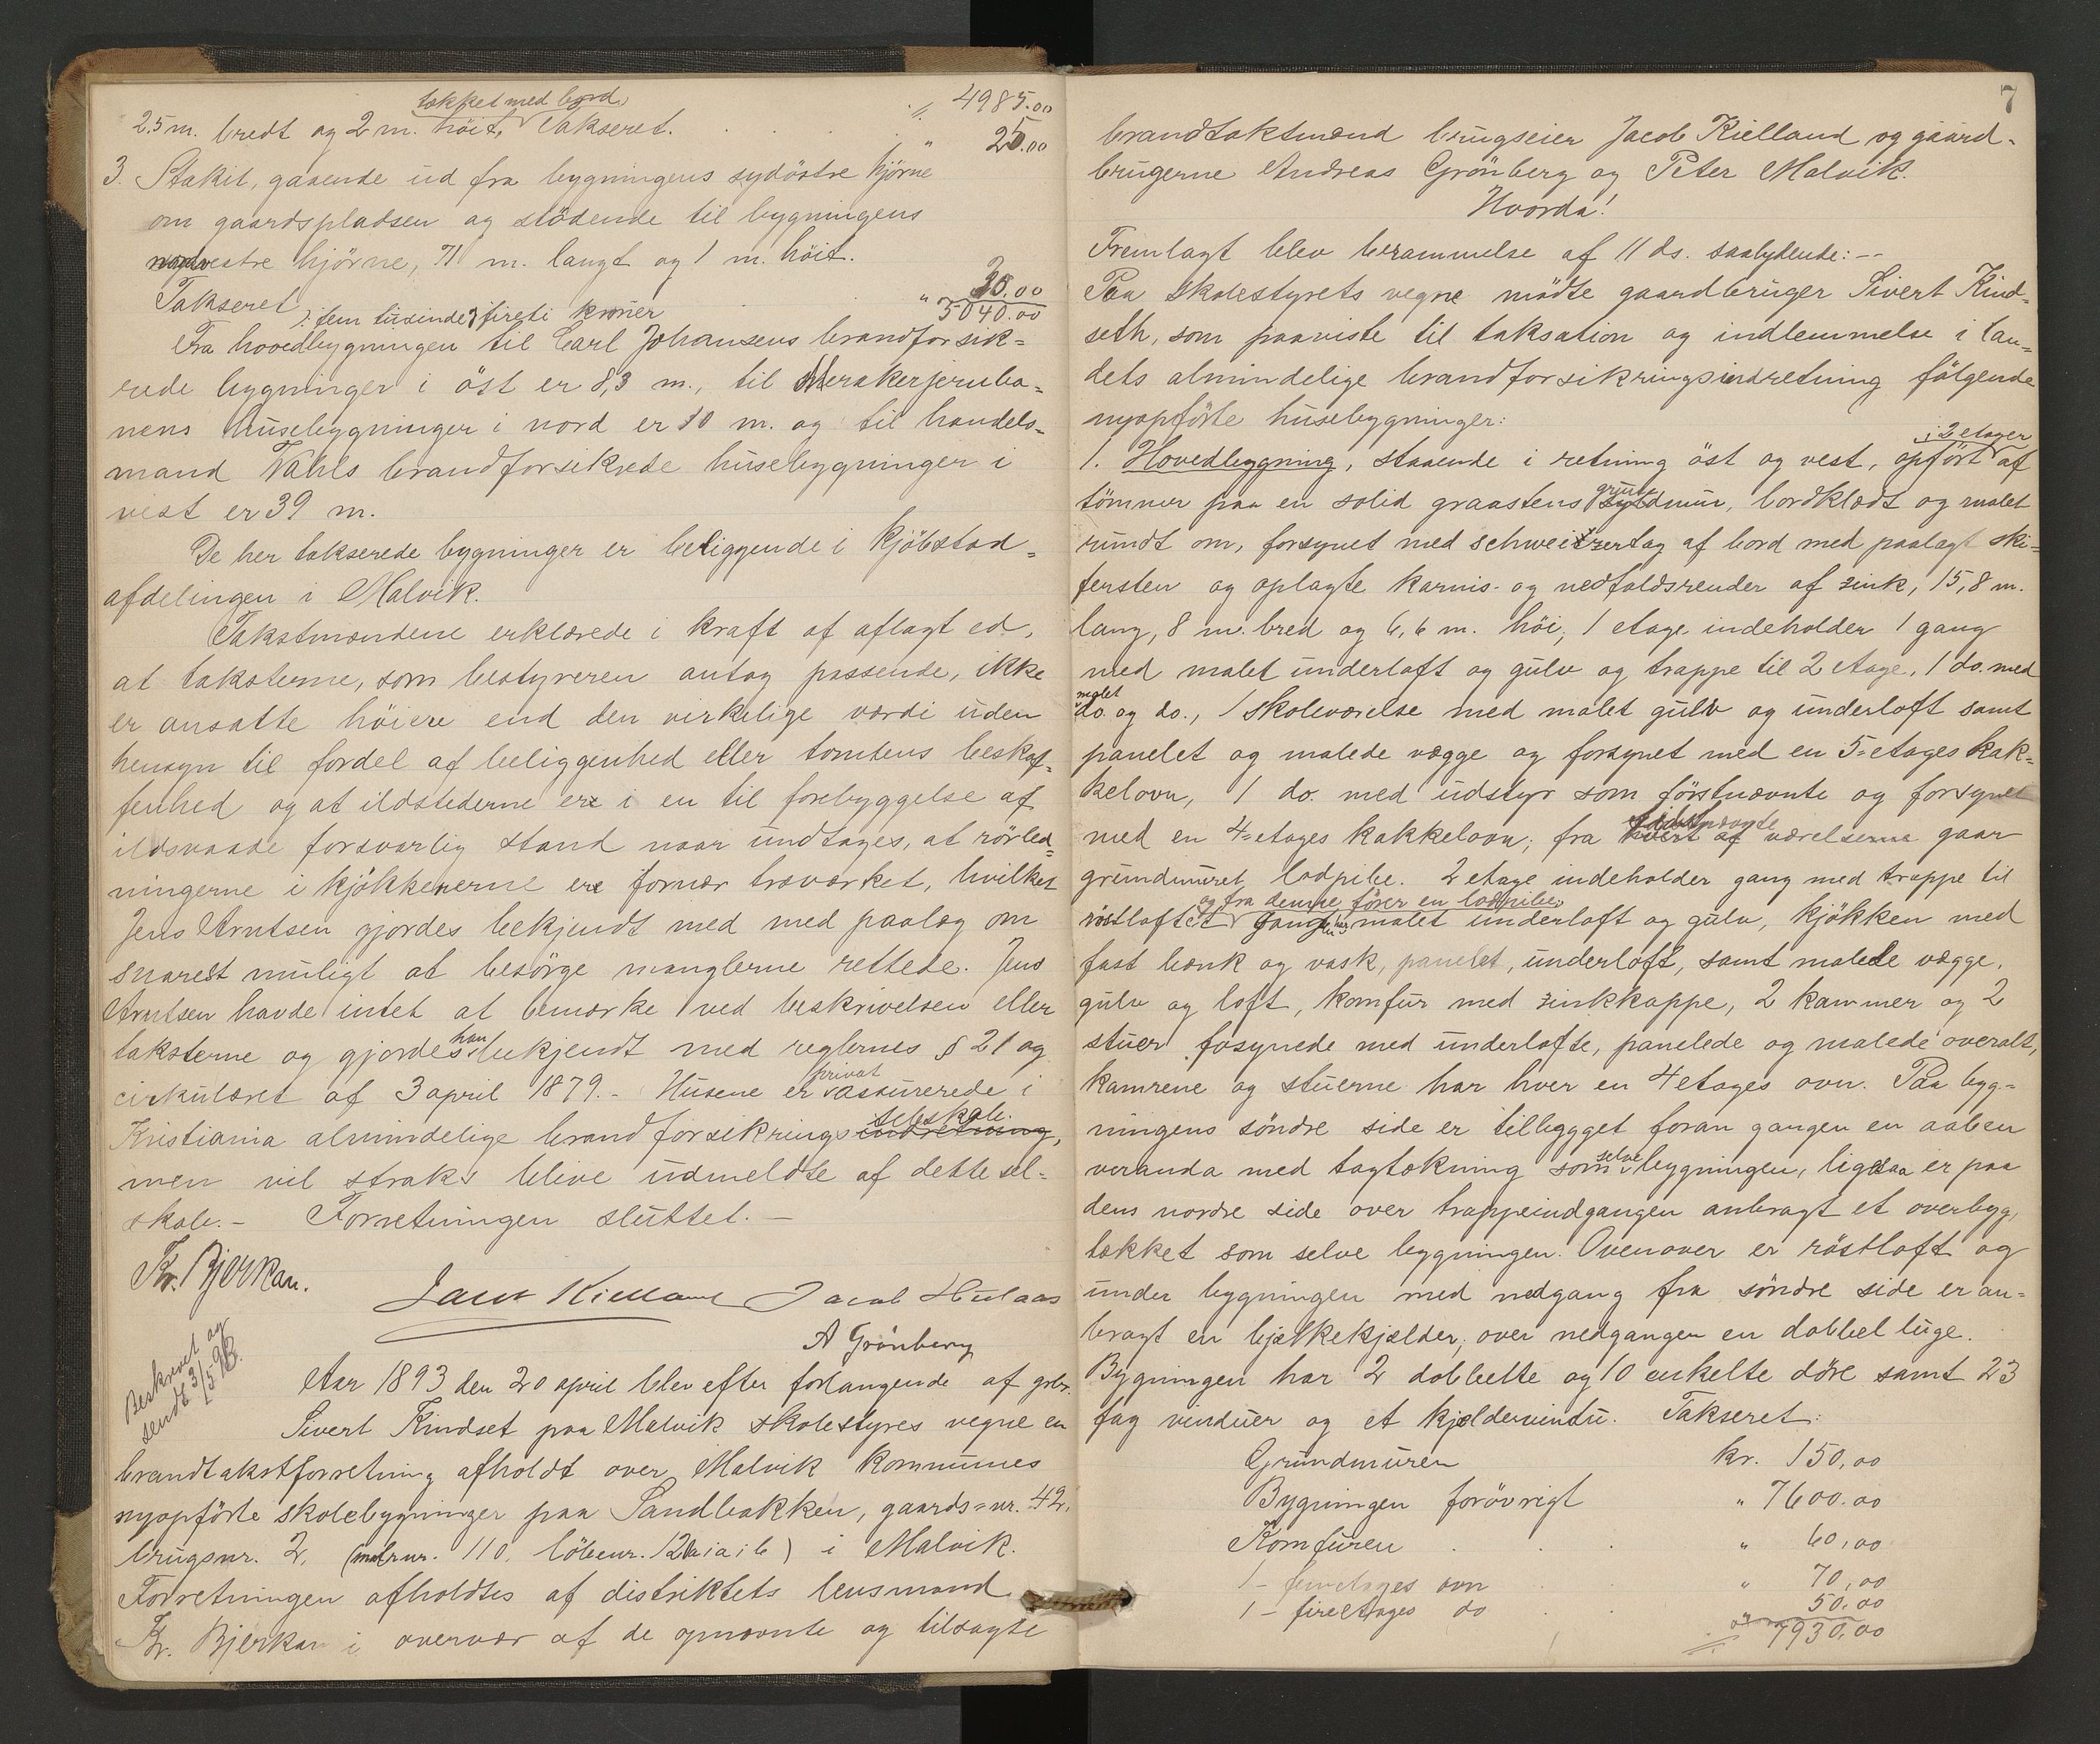 tækket med bord,
" 4985.00
2.5 m. bredt og 2 m. höit, Takseret. " 25.00
3. Stakit, gaaende ud fra bygningens sydöstre hjörne
om gaardspladsen og stödende til bygningens
nordvestre hjörne, 71 m. langt og 1 m. höit.
Takseret " 30.00
): fem tusinde & fireti kroner " 5040.00
Fra hovedbygningen til Carl Johansens brandforsik=
rede bygninger i öst er 8,3 m., til Merakerjernba=
nens husebygninger i nord er 30 m. og til handels=
mand Vahls brandforsikrede husebygninger i
vest er 39 m.
De her takserede bygninger er beliggende i kjöbstad=
afdelingen i Malvik.
Takstmændene erklærede i kraft af aflagt ed,
at taksterne, som bestyreren antog passende, ikke
er ansatte höiere end den virkelige værdi uden
hensyn til fordel af beliggenhed eller tomtens beskaf=
fenhed og at ildstederne ere i en til forebyggelse af
ildsvaade forsvarlig stand naar undtages, at rörled=
ningerne i kjökkenerne ere fornær træværket, hvilket
Jens Arntsen gjordes bekjendt med med paalæg om
snarest muligt at besörge manglerne rettede. Jens
Arntsen havde intet at bemærke ved beskrivelsen eller
han
taksterne og gjordes bekjendt med reglernes § 21 og
privat
cirkulæret af 3 april 1879. - Husene er assurerede i
selskab.
Kristiania almindelige brandforsikringsindretning,
men vil straks blive udmeldte af dette sel=
skab. - Forretningen sluttet. -
Kr. Bjerkan.
Jacob Kielland Jacob Hulaas
A Grönberg
Beskrevet og
sendt 31/5 93
Aar 1893 den 20 april blev efter forlangende af gbr.
Sivert Kindset paa Malvik skolestyres vegne en
brandtakstforretning afholdt over Malvik kommunes
nyopförte skolebygninger paa Sandbakken, gaards=nr. 42,
brugsnr. 2, (matr.nr. 110, löbenr. 12 ) i Malvik.
Forretningen afholdtes af distriktets lensmand
Kr. Bjerkan i overvær af de opnævnte og tilsagte
7
brandtakstmænd brugseier Jacob Kielland og gaard-
brugerne Andreas Grönberg og Peter Malvik.
Hvorda!
Fremlagt blev berammelse af 11 ds. saalydende: --
Paa skolestyrets vegne mödte gaardbruger Sivert Kind=
seth, som paaviste til taksation og indlemmelse i lan=
dets almindelige brandforsikringsindretning fölgende
nyopförte husebygninger:
i 2 etager
1. Hovedbygning, staaende i retning öst og vest, opfört af
grund
tömmer paa en solid graastens syldmur, bordklædt og malet
rundt om, forsynet med schweitzertag af bord med paalagt ski=
fersten og oplagte karnis- og nedfaldsrender af zink, 15,8 m.
lang, 8 m. bred og 6,6 m. höi, 1 etage indeholder 1 gang
med malet underloft og gulv og trappe til 2 etage, 1 do. med
malet
do. og do., 1 skoleværelse med malet gulv og underloft samt
panelet og malede vægge og forsynet med en 5=etages kak=
kelovn, 1 do. med udstyr som förstnævnte og forsynet
med en 4=etages kakkelovn; fra hvert af værelserne gaar
grundmuret ladpibe. 2 etage indeholder gang med trappe til
og fra denne förer en ladpibe
röstloftet malet underloft og gulv, kjökken med
fast bænk og vask, panelet, underloft, samt malede vægge,
gulv og loft, komfur med zinkkappe, 2 kammer og 2
stuer fosynede med underlofte, panelede og malede overalt,
kamrene og stuerne har hver en 4 etages ovn. Paa byg=
ningens söndre side er tilbygget foran gangen en aaben
selve
veranda med tagtækning som bygningen, ligesaa er paa
dens nordre side over trappeindgangen anbragt et overbyg,
tækket som selve bygningen. Ovenover er röstloft og
under bygningen med nedgang fra söndre side er an=
bragt en bjælkekjælder, over nedgangen en dobbel luge.
Bygningen har 2 dobbelte og 10 enkelte döre samt 23
fag vinduer og et kjældervindu. Takseret:
Grundmuren kr. 150,00
Bygningen forövrigt " 7600.00
Komfuren " 60,00
1 - femetages ovn " 70,00
1 - fireetages do " 50,00
7930,00